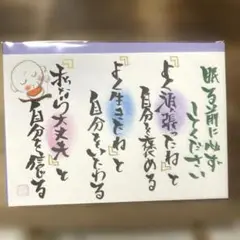 眠る前に必ず
してください
『よく頑張ったね』と
自分を褒める
『よく生きたね』と
自分をいたわる
『私なら大丈夫』と
自分を信じる